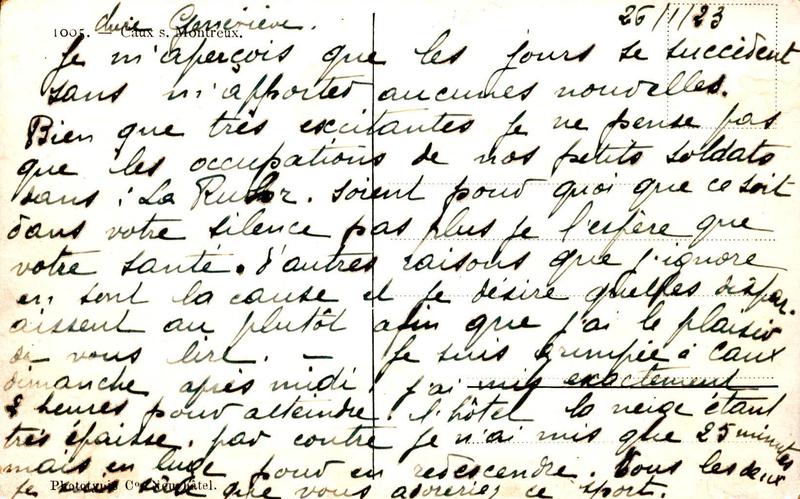 chère Geneviève. 26/1/23
1005. — Caux s. Montreux.
Je m'aperçois que les jours se succèdent
sans m'apporter aucunes nouvelles.
Bien que très excitantes je ne pense pas
que les occupations de nos petits soldats
dans : La Ruhr. soient pour quoi que ce soit
dans votre silence pas plus je l'espère que
votre santé. d'autres raisons que j'ignore
en sont la cause et je désire quelles dispar.
aissent au plutôt afin que j'ai le plaisir
de vous lire. — Je suis grimpée à Caux
dimanche après midi, j'ai mis exactement
2 heures pour atteindre l'hôtel la neige étant
très épaisse, par contre je n'ai mis que 25 minutes
mais en luge pour en redescendre. Tous les deux
Phototypie Co Neuchâtel.
je que vous adoreriez ce sport.